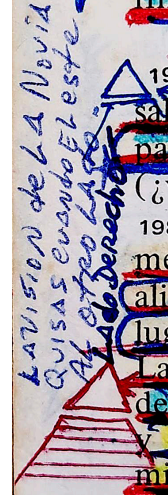 LA VISION de LA NoviA
QUISAS CUANDO EL ESTE
AL OTRO LADO.
Lado Derecho
19
sa
pa
(¿
198
me
ali
lug
La
de
y
mi